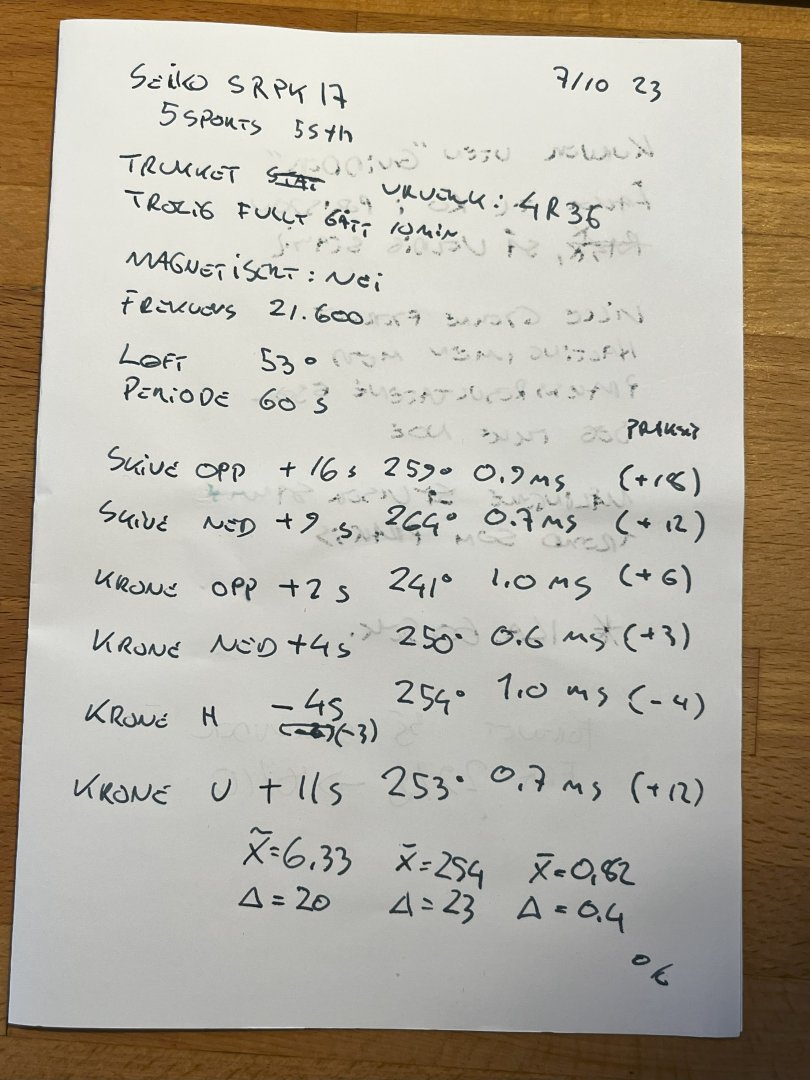 SEIKO SRPK17 7/10 23
5 SPORTS 55th
TRUKKET URVERK: 4R36
TROLIG FULLT GÅTT 10 MIN
MAGNETISERT: NEI
FREKVENS 21.600
LØFT 53°
PERIODE 60 s
SKIVE OPP +16 s 259° 0.9 ms (+18)
SKIVE NED +9 s 264° 0.7 ms (+12)
KRONE OPP +2 s 241° 1.0 ms (+6)
KRONE NED +4 s 250° 0.6 ms (+3)
KRONE H -4s 254° 1.0 ms (-4)
(-3)
KRONE V +11s 253° 0,7 ms (+12)
x̄=6,33 x̄=254 x̄=0,82
Δ=20 Δ=23 Δ=0.4